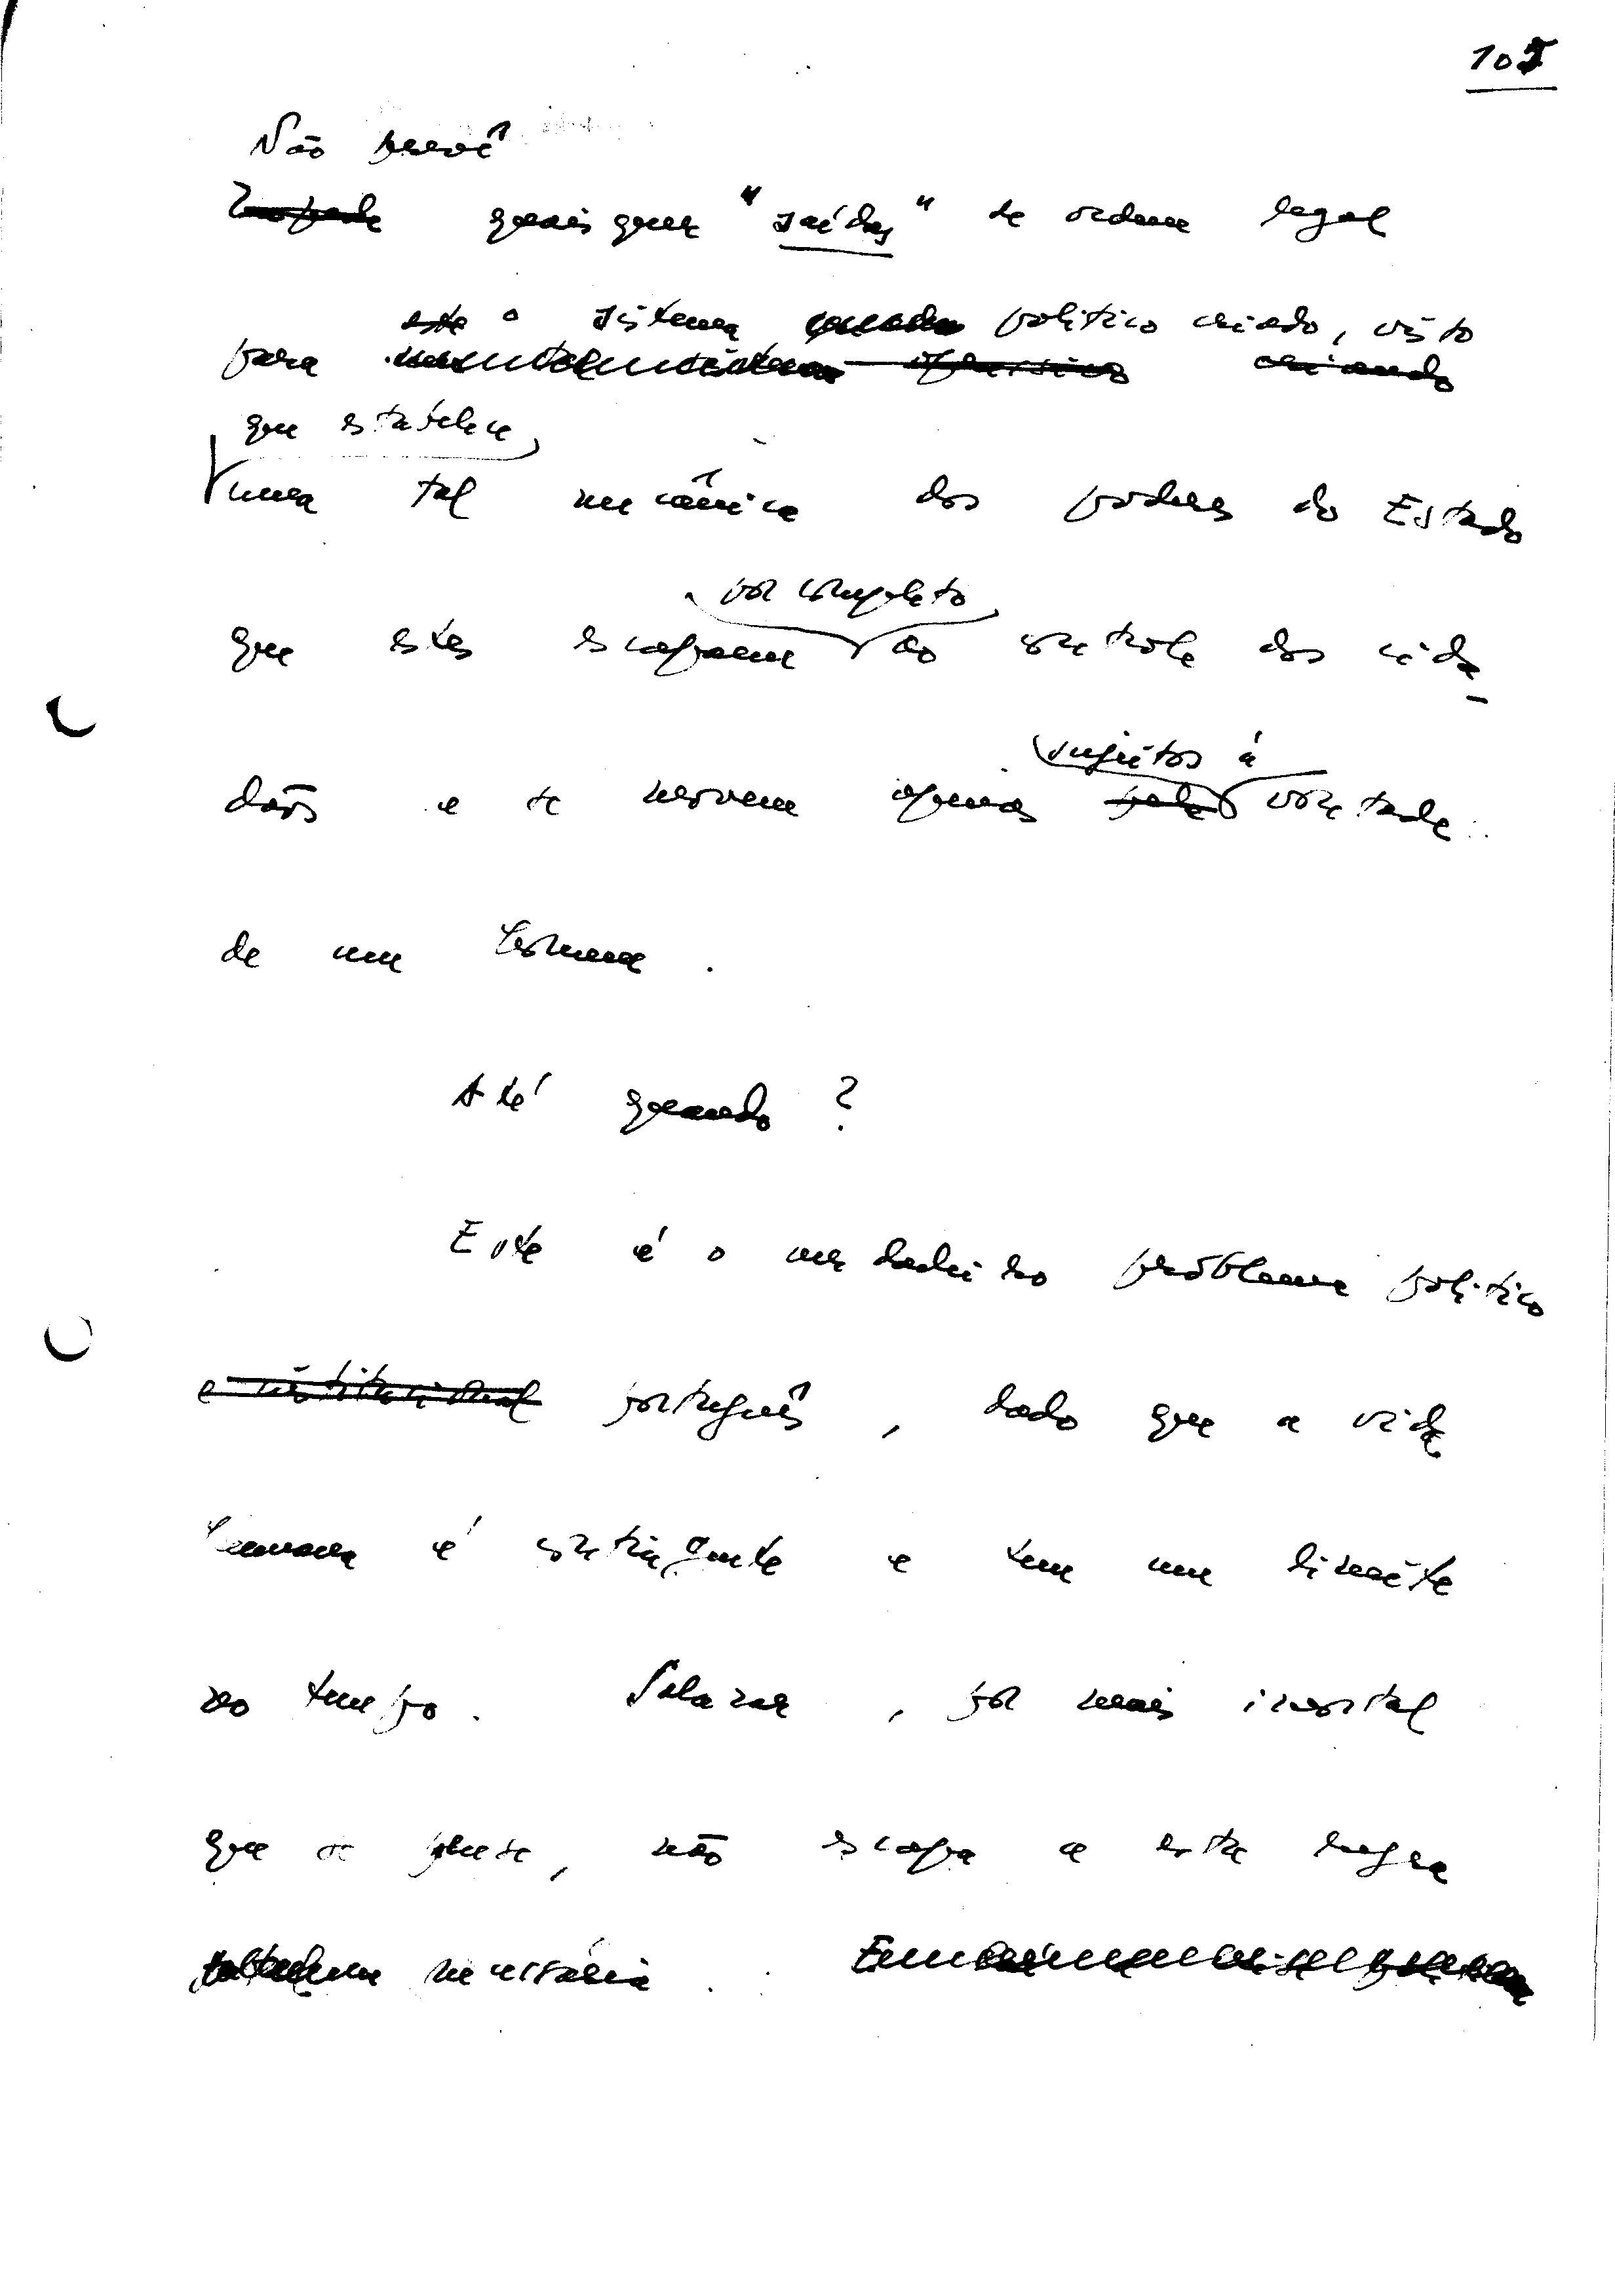 105
Não prevê
quaisquer "saídas" de ordem legal
este o sistema político criado, visto
para
que estabelece
uma tal mecânica dos poderes do Estado
por completo
que estes escapam ao controle dos cida-
sujeitos à
dãos e se movem apenas pela vontade
de um homem.
Até quando?
Este é o verdadeiro problema político
e institucional português, dado que a vida
humana é contingente e tem um limite
no tempo. Salazar, por mais imortal
que se julgue, não escapa a esta regra
necessária.